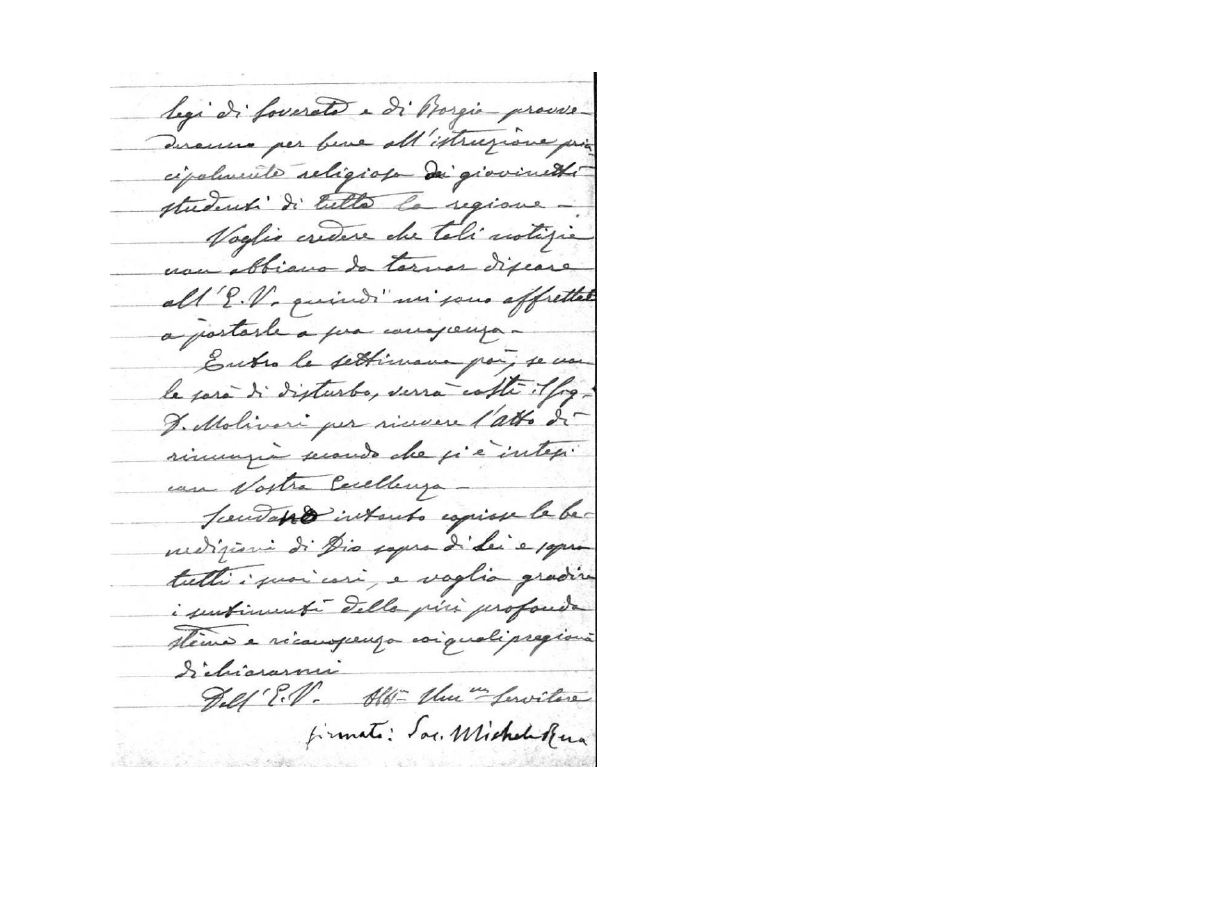 legi di Soverato e di Borgia provve-
deranno per bene all'istruzione prin-
cipalmente religiosa dei giovinetti
studenti di tutta la regione -
Voglio credere che tali notizie
non abbiano da tornar discare
all'E.V. quindi mi sono affrettato
a portarle a sua conoscenza -
Entro la settimana poi, se non
le sarà di disturbo, verrà costì il Sig.
D. Molinari per ricevere l'atto di
rinunzia secondo che si è intesi
con Vostra Eccellenza -
Scendano intanto copiose le be-
nedizioni di Dio sopra di Lei e sopra
tutti i suoi cari, e voglia gradire
i sentimenti della più profonda
stima e riconoscenza coi quali pregiomi
dichiararmi
Dell'E.V. Um.mo Servitore
firmato: Sac. Michele Rua